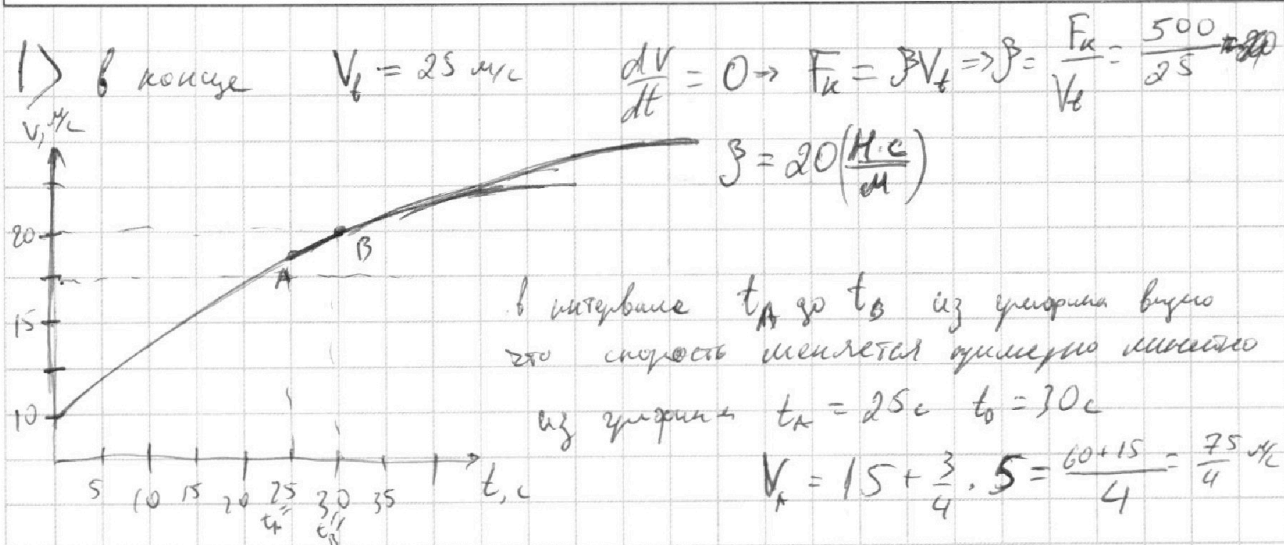 1) в конце V_t = 25 м/с dV/dt = 0 => F_к = βV_t => β = F_к/V_t = 500/25
β = 20 (Н·с/м)
V, м/с
20
15
10
A
B
5 10 15 20 25 30 35 t, с
t_A t_B
в интервале t_A до t_B из графика видно
что скорость меняется примерно линейно
из графика t_A = 25с t_B = 30с
V_A = 15 + 3/4 · 5 = (60+15)/4 = 75/4 м/с